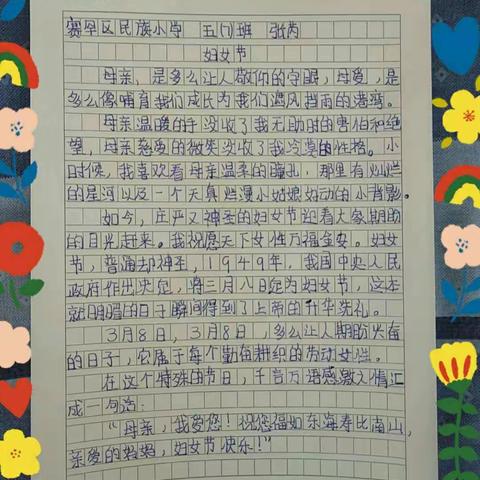 赛罕区民族小学 五(1)班 张芮
妇女节
母亲,是多么让人敬仰的字眼,母爱,是
多么像哺育我们成长为我们遮风挡雨的港湾。
母亲温暖的手没收了我无助时的害怕和绝
望,母亲慈爱的微笑没收了我冷漠的性格。小
时候,我喜欢看母亲温柔的瞳孔,那里有灿烂
的星河以及一个天真烂漫小姑娘好动的小背影。
如今,庄严又神圣的妇女节迎着大家期盼
的目光赶来。我祝愿天下女性万福金安。妇女
节,普通却神圣,1949年,我国中央人民
政府作出决定,将三月八日定为妇女节,这本
就明晴的日子瞬间得到了上帝的升华洗礼。
3月8日,3月8日,多么让人期盼兴奋
的日子,它属于每个勤奋耕织的劳动女性。
在这个特殊的节日,千言万语感激之情汇
成一句话:
“母亲,我爱您!祝您福如东海寿比南山,
亲爱的妈妈,妇女节快乐!”